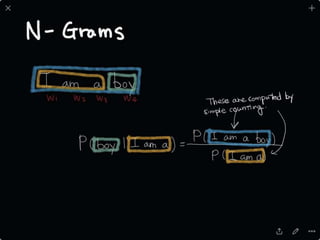 N- Grams
I am a boy
w₁ w₂ w₃ w₄
These are computed by
simple counting.
P( boy | I am a ) = P( I am a boy )
P( I am a )